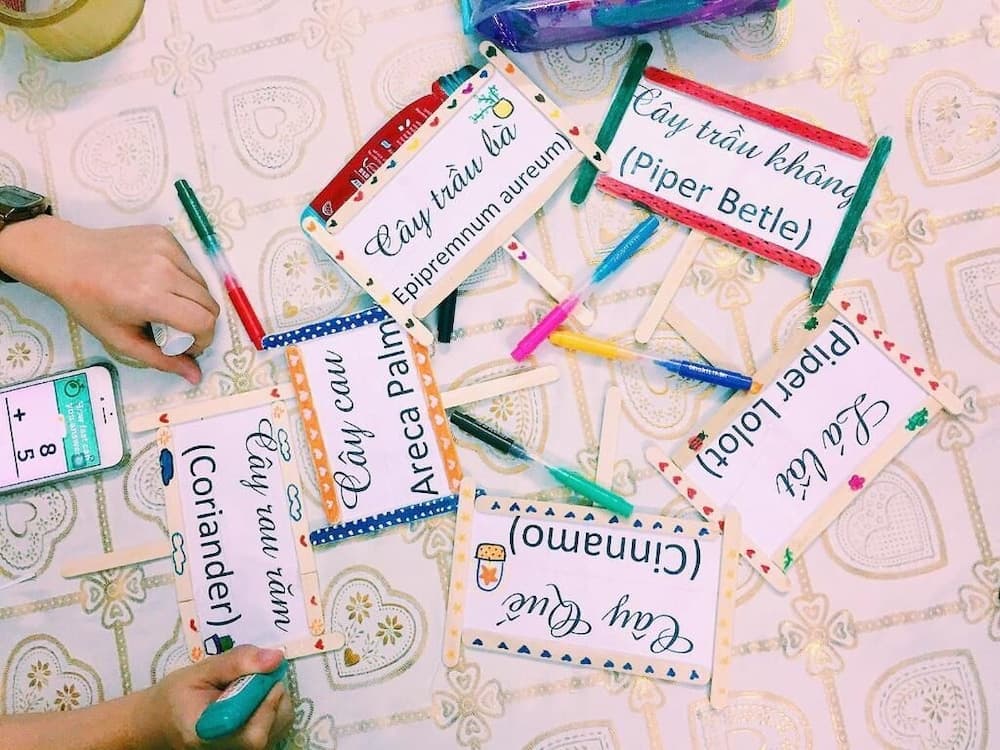 Cây trầu bà
Epipremnum aureum)
Cây trầu không
(Piper Betle)
Cây cau
Areca Palm
Cây rau răm
(Coriander)
Lá lốt
(Piper Lolot)
Cây Quế
(Cinnamo)
8
+ 5